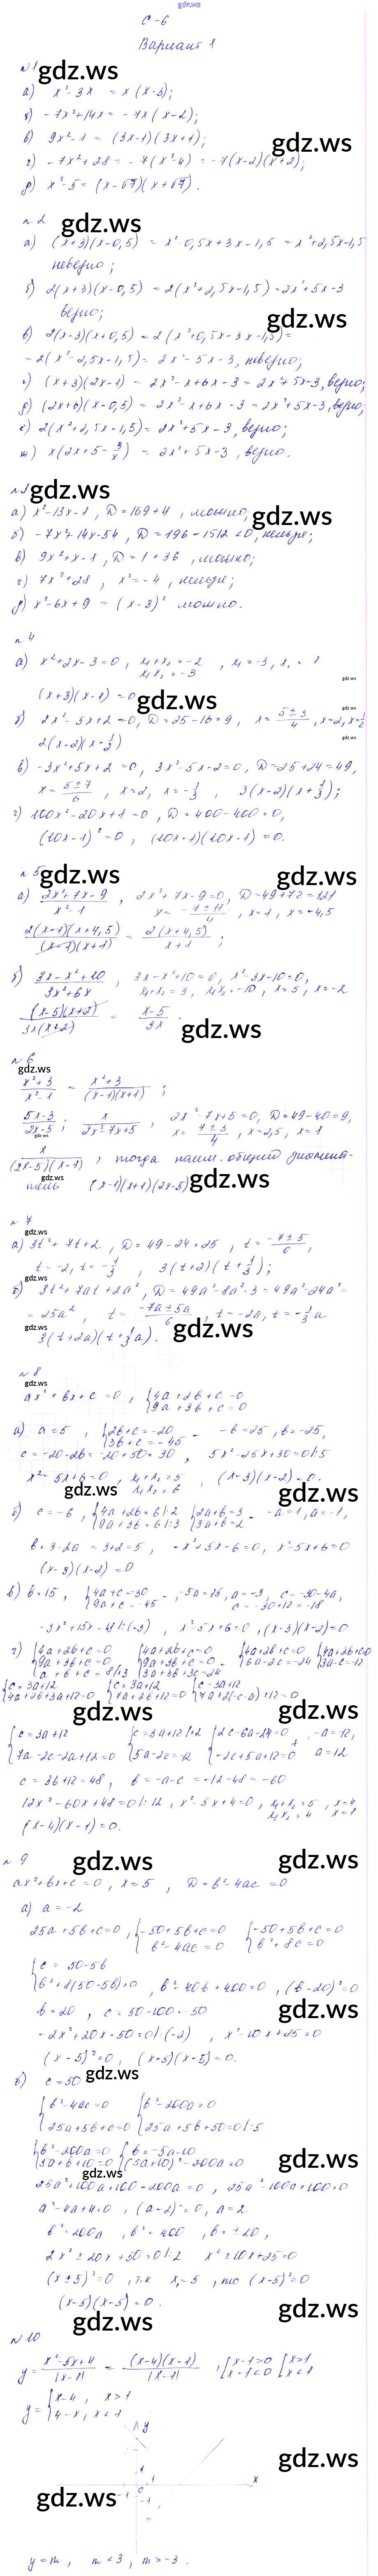 gdz.ws
С-6
Вариант 1
№1 gdz.ws
а) x² - 3x = x(x-3);
б) -7x²+14x = -7x(x-2);
в) 9x²-1 = (3x-1)(3x+1);
gdz.ws
г) -7x²+28 = -7(x²-4) = -7(x-2)(x+2);
д) x²-5 = (x-√7)(x+√7).
№2 gdz.ws
а) (x+3)(x-0,5) = x²-0,5x+3x-1,5 = x²+2,5x-1,5
неверно;
б) 2(x+3)(x-0,5) = 2(x²+2,5x-1,5) = 2x²+5x-3
верно; gdz.ws
в) 2(x-3)(x+0,5) = 2(x²+0,5x-3x-1,5) =
= 2(x²-2,5x-1,5) = 2x²-5x-3, неверно;
г) (x+3)(2x-1) = 2x²-x+6x-3 = 2x²+5x-3, верно;
д) (2x+6)(x-0,5) = 2x²-x+6x-3 = 2x²+5x-3, верно;
е) 2(x²+2,5x-1,5) = 2x²+5x-3, верно;
ж) x(2x+5-3/x) = 2x²+5x-3, верно.
№3 gdz.ws
а) x²-13x-1, D=169+4, можно; gdz.ws
б) -7x²+14x-54, D=196-1512<0, нельзя;
в) 9x²+x-1, D=1+36, можно;
г) 7x²+28, x²=-4, нельзя;
д) x²-6x+9 = (x-3)² можно.
№4
а) x²+2x-3=0, x₁+x₂=-2, x₁x₂=-3, x₁=-3, x₂=1
gdz.ws
(x+3)(x-1)=0
gdz.ws
gdz.ws
б) 2x²-5x+2=0, D=25-16=9, x=(5±3)/4, x=2, x=1/2
gdz.ws
2(x-2)(x-1/2)
в) -3x²+5x+2=0, 3x²-5x-2=0, D=25+24=49,
x=(5±7)/6, x=2, x=-1/3, 3(x-2)(x+1/3);
г) 100x²-20x+1=0, D=400-400=0,
(10x-1)²=0, (10x-1)(10x-1)=0.
№5 gdz.ws gdz.ws
а) (2x²+7x-9)/(x²-1), 2x²+7x-9=0, D=49+72=121
x=(-7±11)/4, x=1, x=-4,5
2(x-1)(x+4,5)/((x-1)(x+1)) = 2(x+4,5)/(x+1);
б) (3x-x²+10)/(3x²+6x), 3x-x²+10=0, x²-3x-10=0,
x₁+x₂=3, x₁x₂=-10, x=5, x=-2
(x-5)(x+2)/(3x(x+2)) = (x-5)/3x.
gdz.ws
№6
gdz.ws
(x²+3)/(x²-1) = (x²+3)/((x-1)(x+1));
(5x-3)/(2x-5); x/(2x²-7x+5), 2x²-7x+5=0, D=49-40=9,
gdz.ws
x=(7±3)/4, x=2,5, x=1
x/((2x-5)(x-1)), тогда наим. общий знамена-
gdz.ws
тель (x-1)(x+1)(2x-5) gdz.ws
gdz.ws
№7
gdz.ws
а) 3t²+7t+2, D=49-24=25, t=(-7±5)/6,
t=-2, t=-1/3, 3(t+2)(t+1/3);
gdz.ws
б) 3t²+7at+2a², D=49a²-8a²·3=49a²-24a²=
=25a², t=(-7a±5a)/6, t=-2a, t=-1/3a
gdz.ws
3(t+2a)(t+1/3a). gdz.ws
№8
gdz.ws
ax²+bx+c=0, {4a+2b+c=0
9a+3b+c=0
а) a=5, {2b+c=-20
3b+c=-45 - -b=25, b=-25,
c=-20-2b=-20+50=30, 5x²-25x+30=0|:5
x²-5x+6=0, x₁+x₂=5, x₁x₂=6, (x-3)(x-2)=0.
gdz.ws gdz.ws
б) c=-6, {4a+2b=6|:2
9a+3b=6|:3 {2a+b=3
3a+b=2 - -a=1, a=-1,
b=3-2a=3+2=5, -x²+5x-6=0, x²-5x+6=0
(x-3)(x-2)=0
в) b=15, {4a+c=-30
9a+c=-45 -, -5a=15, a=-3, c=-30-4a,
c=-30+12=-18
-3x²+15x-18|:(-3), x²-5x+6=0, (x-3)(x-2)=0
г) {4a+2b+c=0
9a+3b+c=0
a+b+c=8|·3 {4a+2b+c=0
9a+3b+c=0
3a+3b+3c=24 {4a+2b+c=0
6a-2c=-24 {4a+2b+c=0
3a-c=-12
{c=3a+12
4a+2b+3a+12=0 {c=3a+12
7a+2b+12=0 {c=3a+12
7a+2(-c-a)+12=0
gdz.ws gdz.ws
{c=3a+12
7a-2c-2a+12=0 {c=3a+12|·2
5a-2c=-12 {2c-6a-24=0
-2c+5a+12=0 + -a=-12,
a=12
c=36+12=48, b=-a-c=-12-48=-60
12x²-60x+48=0|:12, x²-5x+4=0, x₁+x₂=5, x₁x₂=4, x=4, x=1
(x-4)(x-1)=0.
№9 gdz.ws gdz.ws
ax²+bx+c=0, x=5, D=b²-4ac=0
а) a=-2
25a+5b+c=0, {-50+5b+c=0
b²-4ac=0 {-50+5b+c=0
b²+8c=0
{c=50-5b
b²+8(50-5b)=0, b²-40b+400=0, (b-20)²=0
gdz.ws
b=20, c=50-100=-50
-2x²+20x-50=0|:(-2), x²-10x+25=0
(x-5)²=0, (x-5)(x-5)=0.
б) c=50 gdz.ws
{b²-4ac=0
25a+5b+c=0 {b²-200a=0
25a+5b+50=0|:5
{b²-200a=0
5a+b+10=0 {b=-5a-10
(5a+10)²-200a=0
gdz.ws gdz.ws
25a²+100a+100-200a=0, 25a²-100a+100=0
a²-4a+4=0, (a-2)²=0, a=2
b²=200a, b²=400, b=±20,
2x²±20x+50=0|:2 x²±10x+25=0
(x±5)²=0, т.к x₁=5, то (x-5)²=0
gdz.ws
(x-5)(x-5)=0.
gdz.ws
№10
y=(x²-5x+4)/|x-1| = (x-4)(x-1)/|x-1|, [x-1>0
x-1<0 [x>1
x<1
y={x-4, x>1
4-x, x<1
y
gdz.ws
1
0 1 x
-1
gdz.ws
y=m, m<3, m>-3.